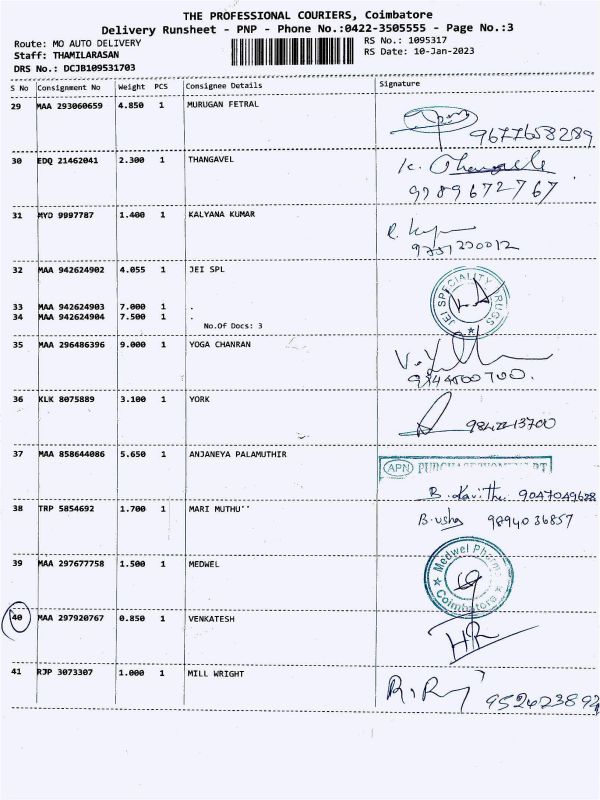 THE PROFESSIONAL COURIERS, Coimbatore
Delivery Runsheet - PNP - Phone No.:0422-3505555 - Page No.:3
Route: MO AUTO DELIVERY RS No.: 1095317
Staff: THAMILARASAN RS Date: 10-Jan-2023
DRS No.: DCJB109531703
S No Consignment No Weight PCS Consignee Details Signature
29 MAA 293060659 4.850 1 MURUGAN FETRAL
9677658289
30 EDQ 21462041 2.300 1 THANGAVEL
K.
9989672767
31 MYD 9997787 1.400 1 KALYANA KUMAR
32 MAA 942624902 4.055 1 JEI SPL
JEI SPECIALITY DRUGS
33 MAA 942624903 7.000 1 .
34 MAA 942624904 7.500 1 .
No.Of Docs: 3
35 MAA 296486396 9.000 1 YOGA CHANRAN
36 KLK 8075889 3.100 1 YORK
37 MAA 858644086 5.650 1 ANJANEYA PALAMUTHIR
APN
B. Kavitha 9047049628
38 TRP 5854692 1.700 1 MARI MUTHU''
B. usha 9894036857
39 MAA 297677758 1.500 1 MEDWEL
Medwel Pharma
Coimbatore
40 MAA 297920767 0.850 1 VENKATESH
41 RJP 3073307 1.000 1 MILL WRIGHT